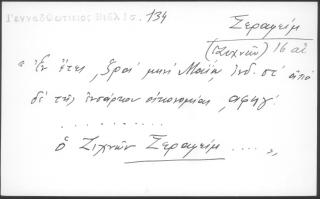 Γενναδιοτικος Βιβλιο. 134
Σεραφείμ
(Ζιχνῶν) 16 αἰ
"Ἐν ἔτει ͵ζραʹ μηνὶ Μαΐῳ ἰνδ. στʹ ἀπὸ
δὲ τῆς ἐνσάρκου οἰκονομίας ͵αφηγʹ
..........
ὁ Ζιχνῶν Σεραφείμ ....",